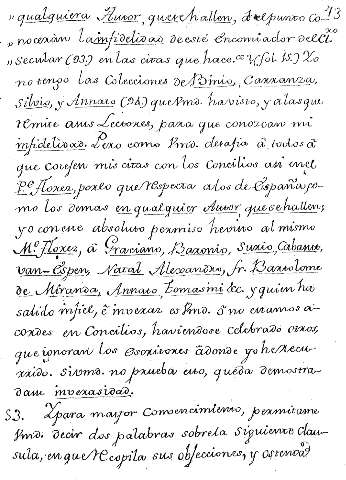 „ qualquiera Autor, que se hallen, al punto co- 73
„ noceràn la infidelidad de este encomiador del Cl.ro
„ Secular (93.) en las citas que hace.„ y (fol. 15.) Yo
no tengo las Colecciones de Binio, Carranza,
Silvio, y Annato (94.) que Vmd. ha visto, y à las que
remite a sus Lectores, para que conozcan mi
infidelidad. Pero como Vmd. desafia à todos à
que cotejen mis citas con los Concilios asi en el
P.e Florez, por lo que respecta a los de España, co-
mo los demas en qualquier Autor, que se hallen;
yo con ese absoluto permiso he ido al mismo
M.o Florez, à Graciano, Baronio, Surio, Cabasut,
van-Espen, Natal Alexandro, fr. Bartolome
de Miranda, Annato, Tomasini &c. y quien ha
salido infiel, è inveraz es Vmd. Si no estamos a-
cordes en Concilios, haviendose celebrado otros,
que ignoran los escritores à donde yo he recu-
rrido. Si Vmd. no prueba esto, queda demostra-
da su inverasidad.
53. Y para mayor Convencimiento, permitame
Vmd. decir dos palabras sobre la siguiente clau-
sula, en que recopila sus objecciones, y ostenda